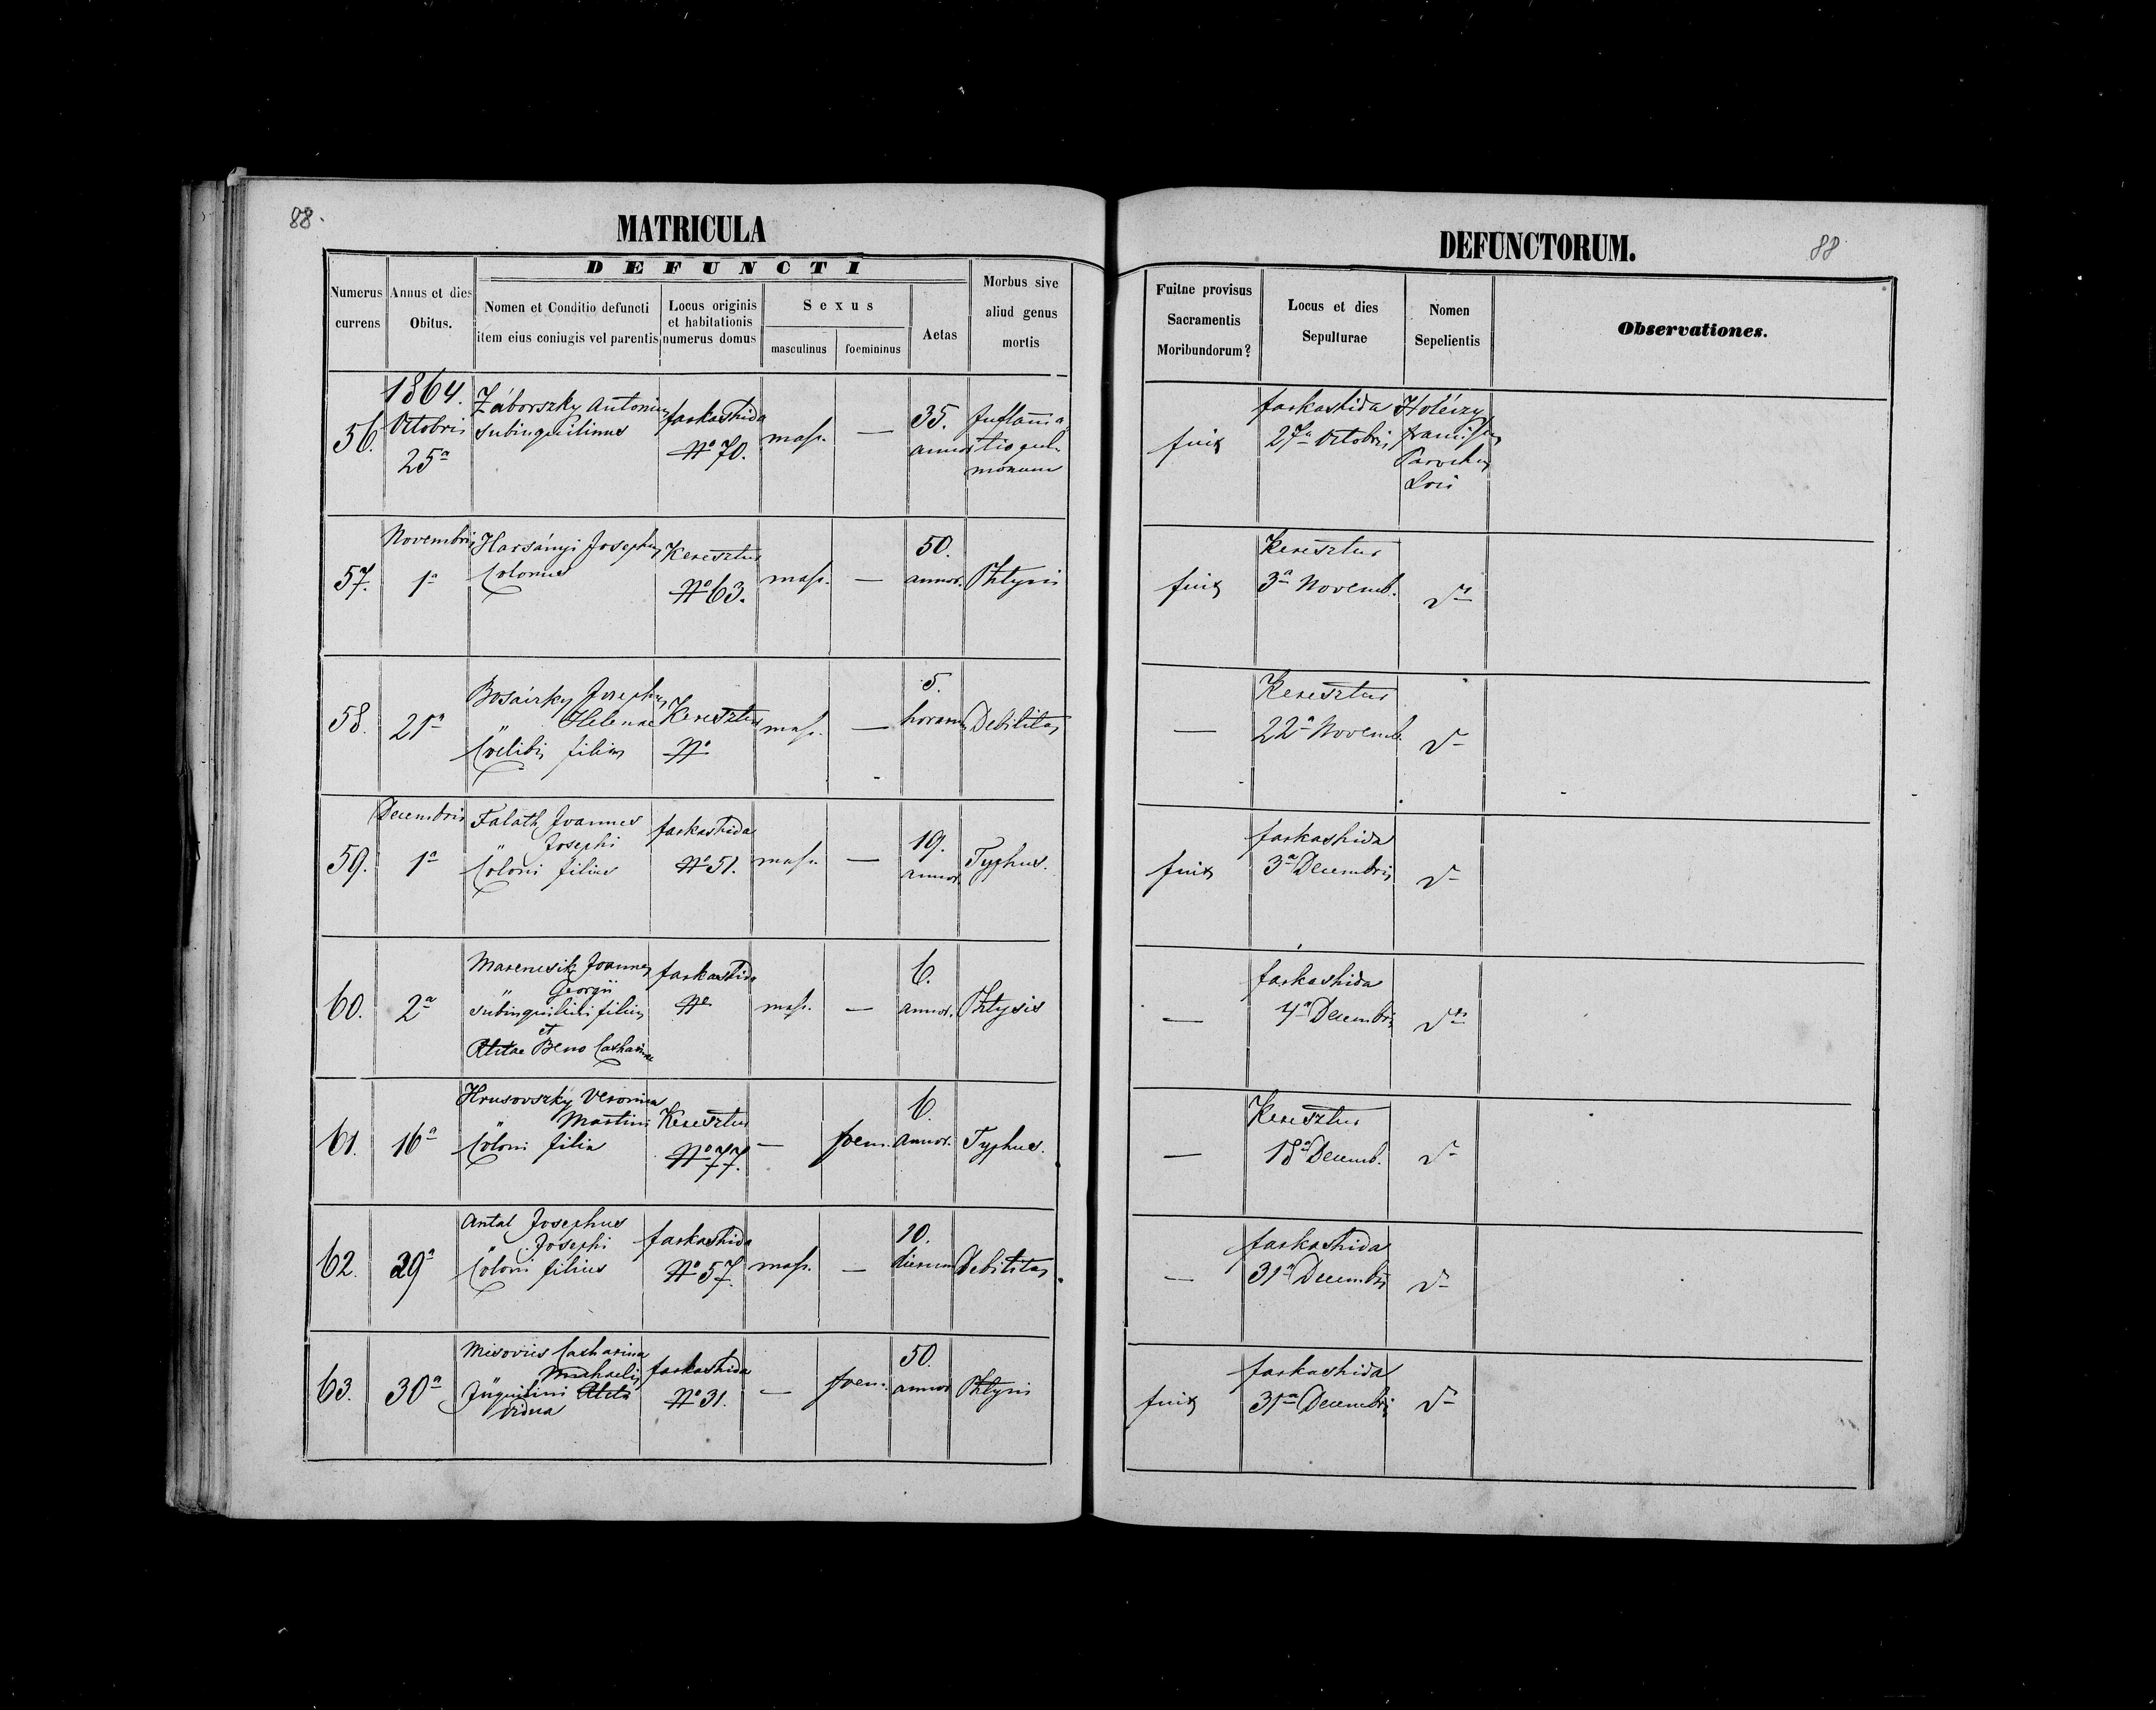 88.
MATRICULA
DEFUNCTI
Numerus currens
Annus et dies Obitus.
Nomen et Conditio defuncti
item eius coniugis vel parentis
Locus originis et habitationis numerus domus
Sexus
masculinus
foemininus
Aetas
Morbus sive aliud genus mortis
DEFUNCTORUM.
88
Fuitne provisus Sacramentis Moribundorum?
Locus et dies Sepulturae
Nomen Sepelientis
Observationes.
1864.
56. Octobris 25a
Záborszky Antonius
Subinquilinus
farkashida
No 70.
masc. —
35. annor.
Inflammatio pulmonum
fuit
farkashida
27a Octobris
Franciscus
Parochus
Loci
57. Novembris 1a
Harsányi Josephus
Colonus
Keresztur
No 63.
masc. —
50. annor.
Phtysis
fuit
Keresztur
3a Novemb.
dto
58. 21a
Josephus
" Helenae
Coelibis filius
Keresztur
No
masc. —
5. horarum
Debilitas
—
Keresztur
22a Novemb.
dto
59. Decembris 1a
Falath Joannes
" Josephi
Coloni filius
farkashida
No 51.
masc. —
19. annor.
Typhus.
fuit
farkashida
3a Decembris
dto
60. 2a
Joannes
" Georgii
Subinquilini filius
et
Alitae Beno Catharinae
farkashida
No
masc. —
6. annor.
Phtysis
—
farkashida
4a Decembris
dto
61. 16a
Hrusovszky Veronica
" Martini
Coloni filia
Keresztur
No 77.
— foem.
6. annor.
Typhus.
—
Keresztur
18a Decemb.
dto
62. 29a
Antal Josephus
" Josephi
Coloni filius
farkashida
No 57.
masc. —
10. dierum
Debilitas
—
farkashida
31a Decembris
dto
63. 30a
Catharina
Michaelis
Inquilini
vidua
farkashida
No 31.
— foem.
50. annor
Phtysis
fuit
farkashida
31a Decembris
dto